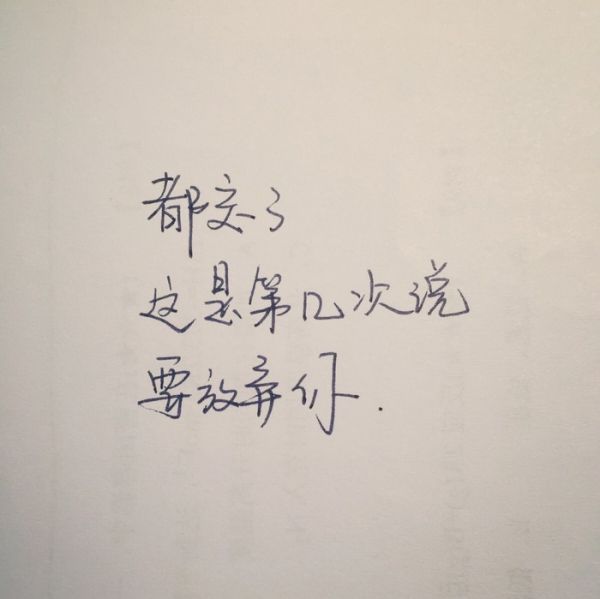 都交了
这是第几次说
要放弃你.